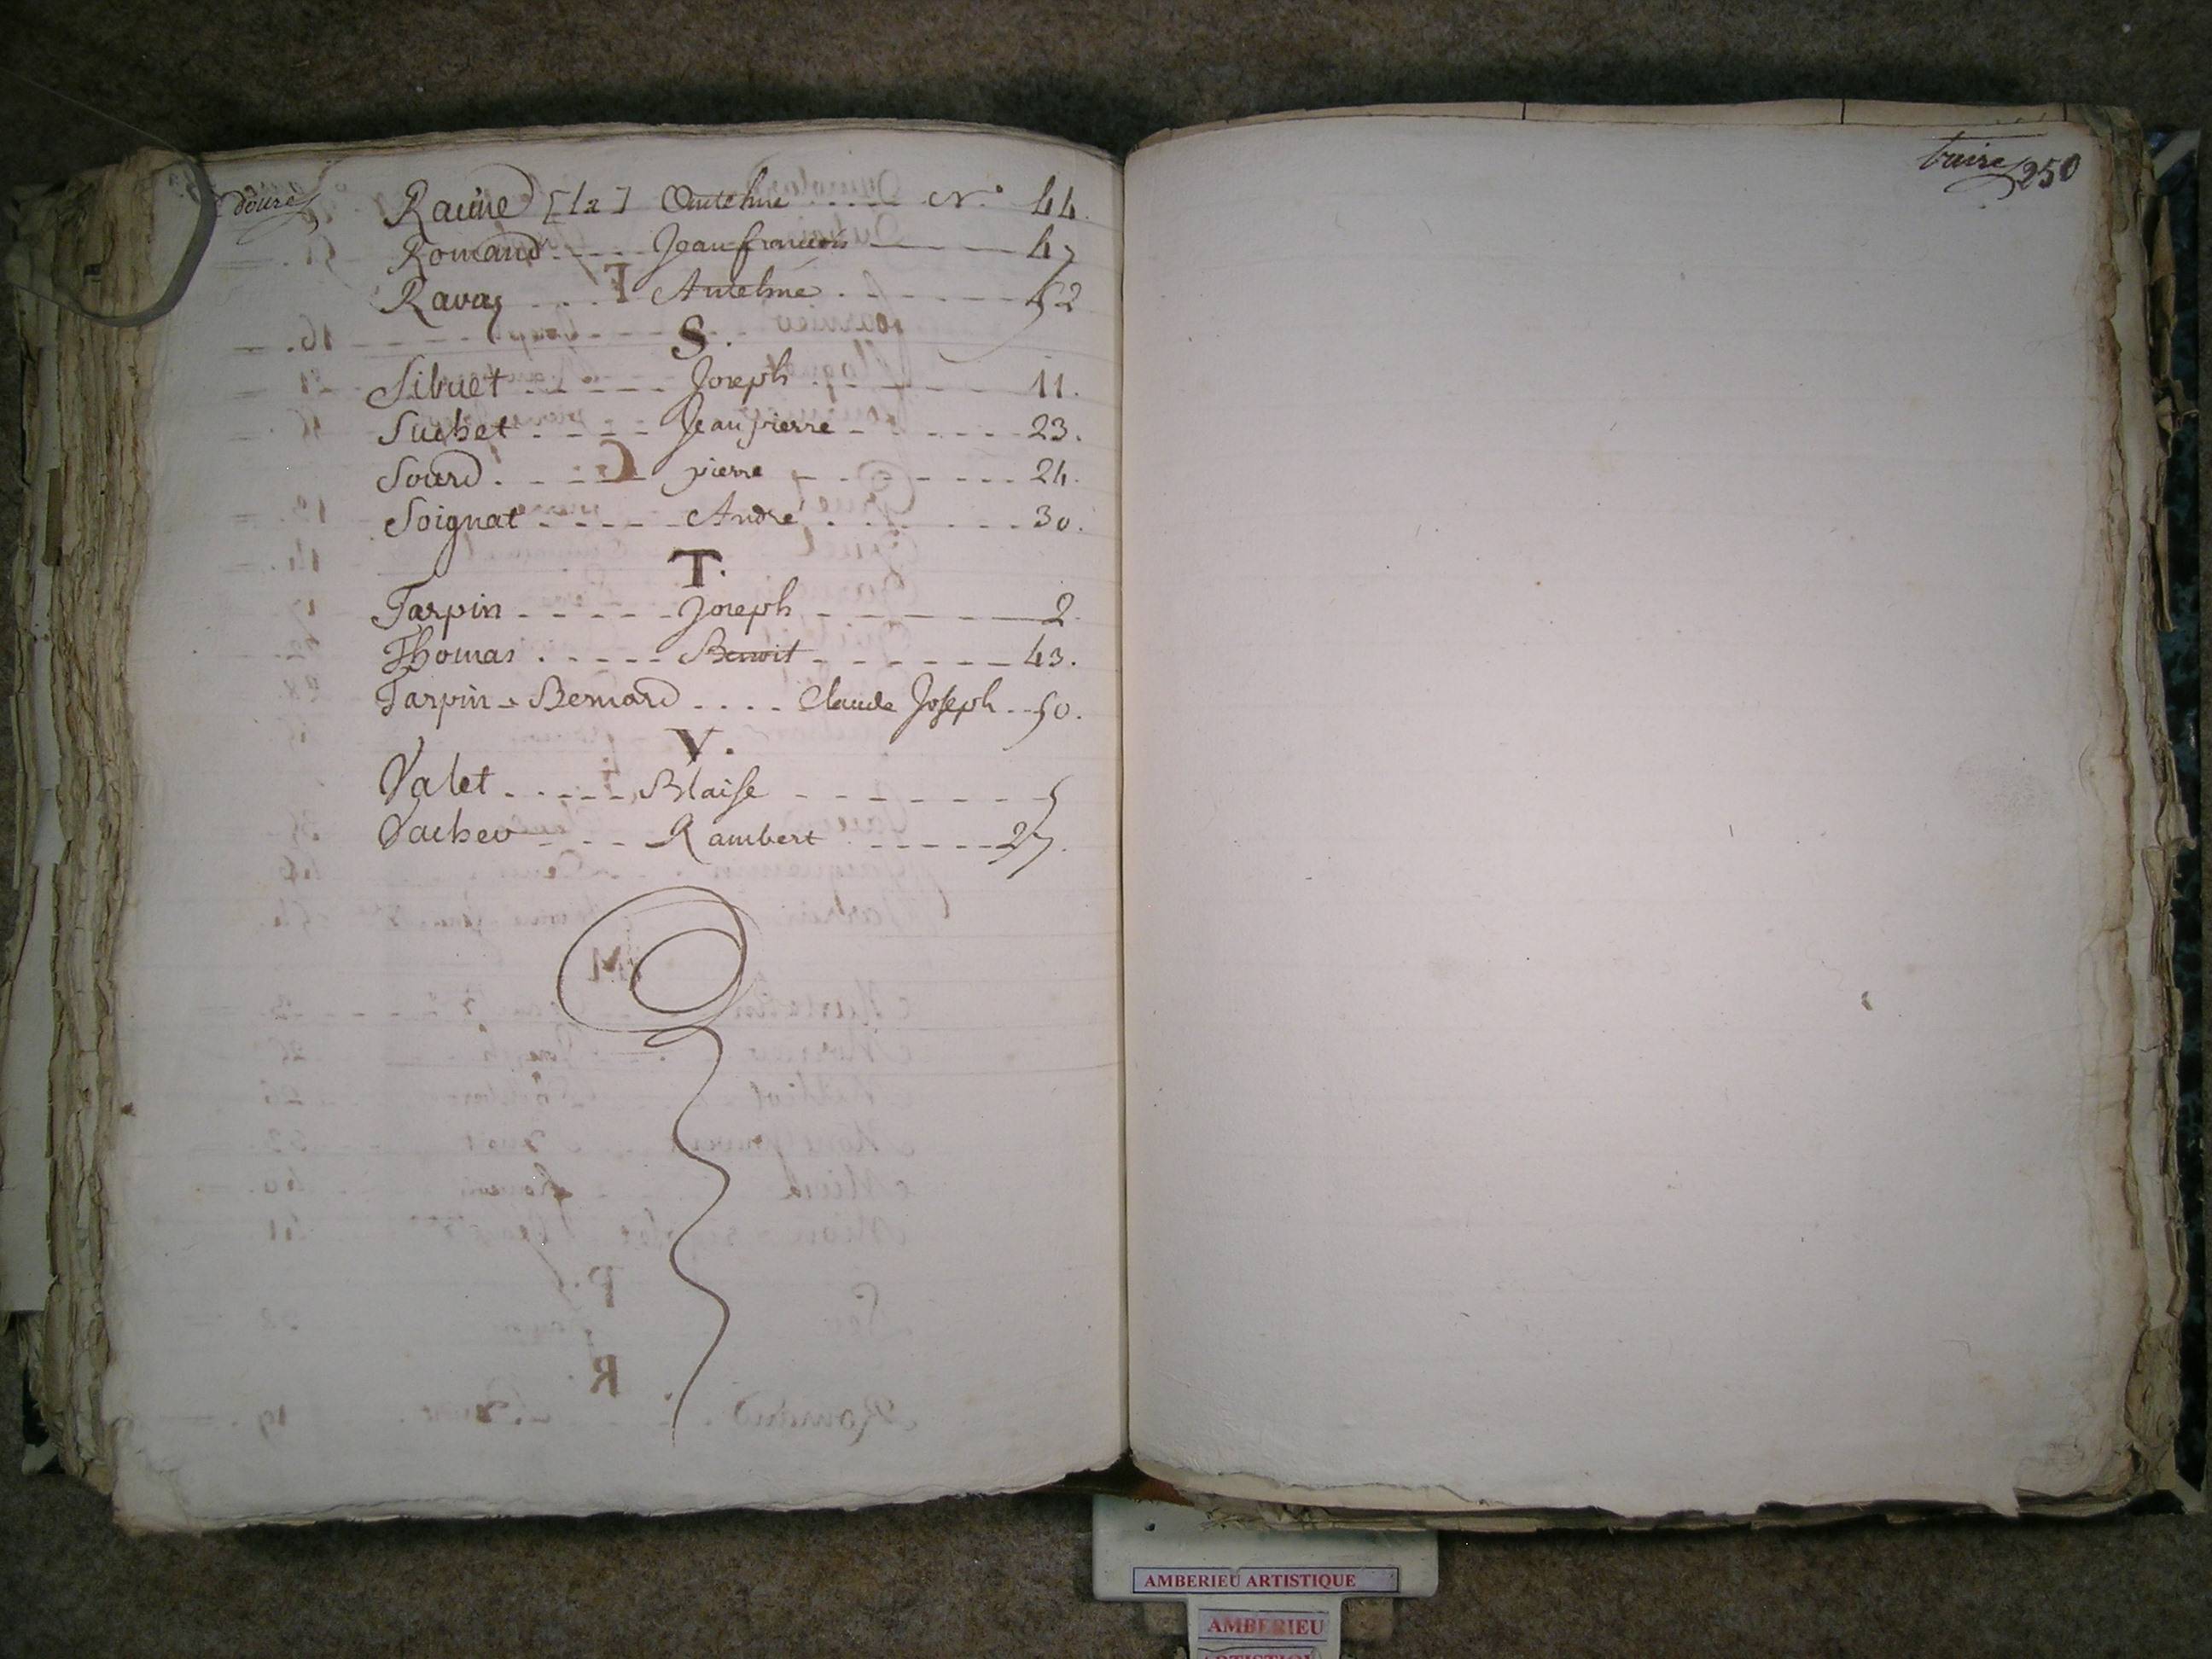 douze
Racine [la] Antelme .... N.° 44.
Romand .... Jean françois 47
Ravay .... Antelme ...... 52
S.
Sibuet ..... Joseph ...... 11.
Suchet .... Jean pierre ...... 23.
Sourd .... pierre ...... 24.
Soignat .... André ...... 30.
T.
Tarpin ..... Joseph 2.
Thomas ..... Benoit ...... 43.
Tarpin - Bernard .... Claude Joseph .. 50.
V.
Valet ..... Blaise ...... 5
Vacher .... Rambert ...... 27.
treize 250
AMBERIEU ARTISTIQUE
AMBERIEU
ARTISTIQUE